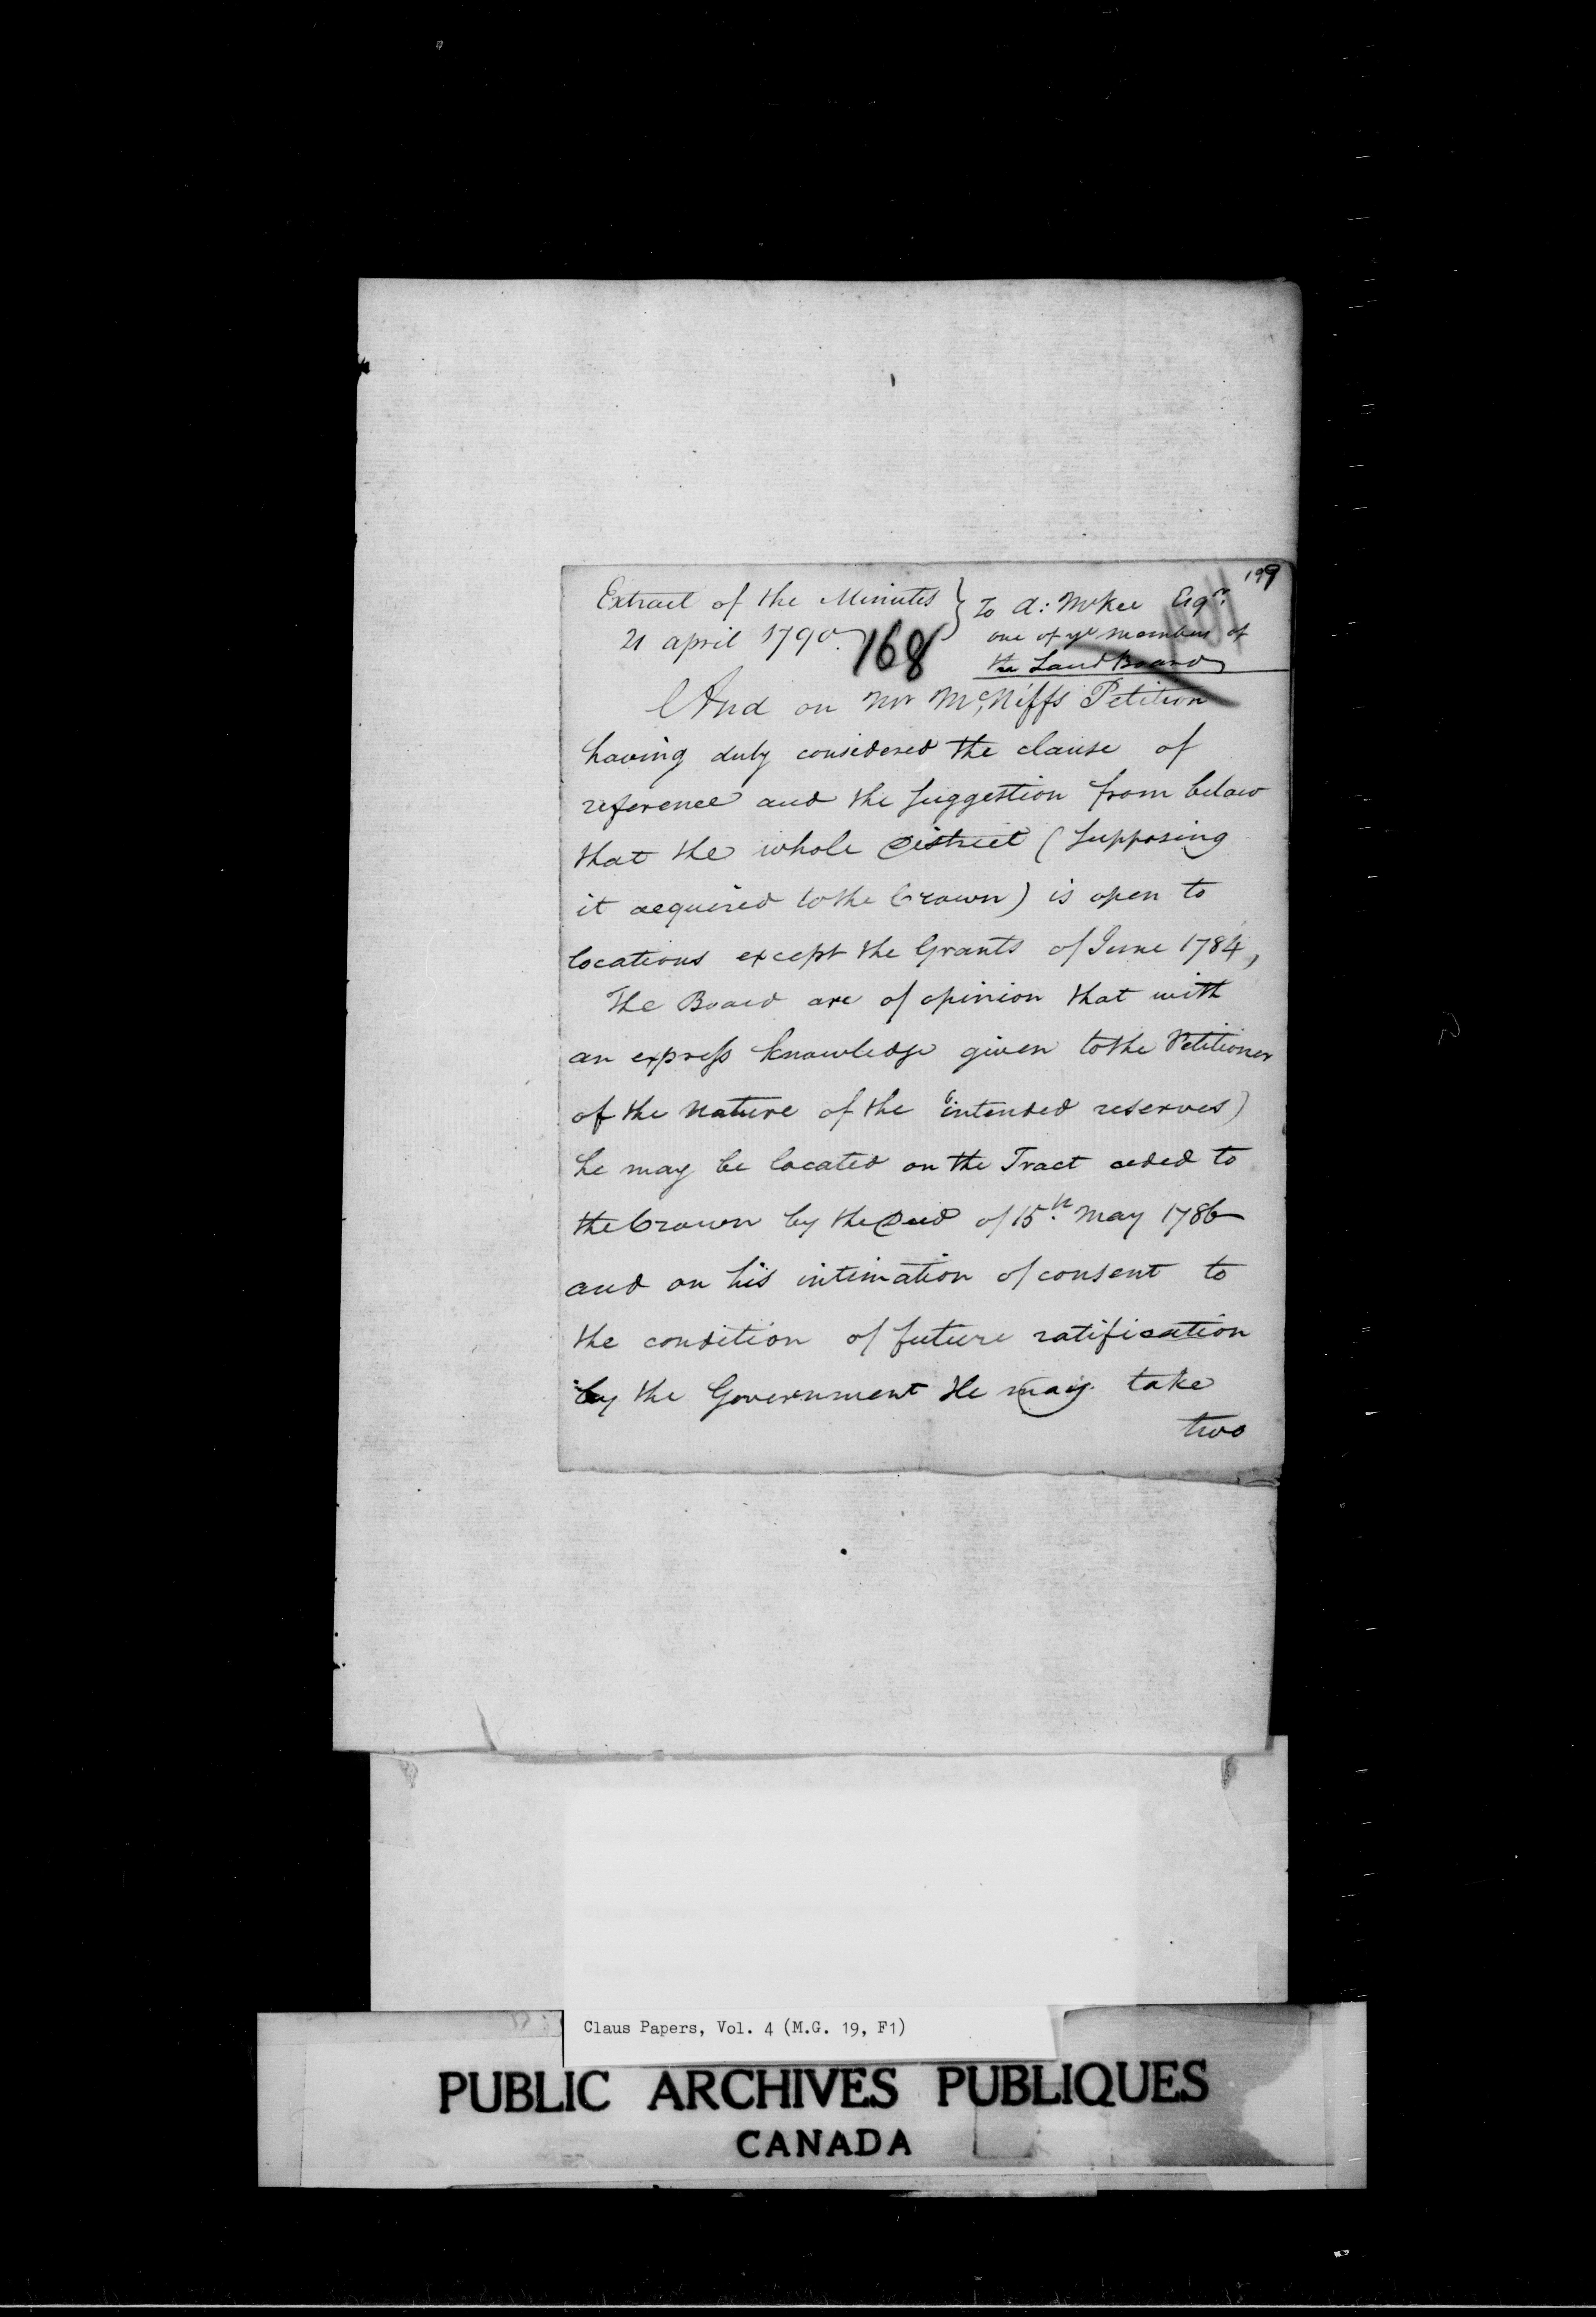 199
Extract of the Minutes } To A: McKee Esqr.
21 april 1790. 168 one of ye members of
the Land Board
And on Mr McNiffs Petition
having duly considered the clause of
reference and the suggestion from below
that the whole District (supposing
it acquired to the Crown) is open to
locations except the Grants of June 1784,
The Board are of opinion that with
an express knowledge given to the Petitioner
of the nature of the (intended reserves)
he may be located on the Tract ceded to
the Crown by the Deed of 15th. May 1786
and on his intimation of consent to
the condition of future ratification
by the Government He may take
two
Claus Papers, Vol. 4 (M.G. 19, F1)
PUBLIC ARCHIVES PUBLIQUES
CANADA